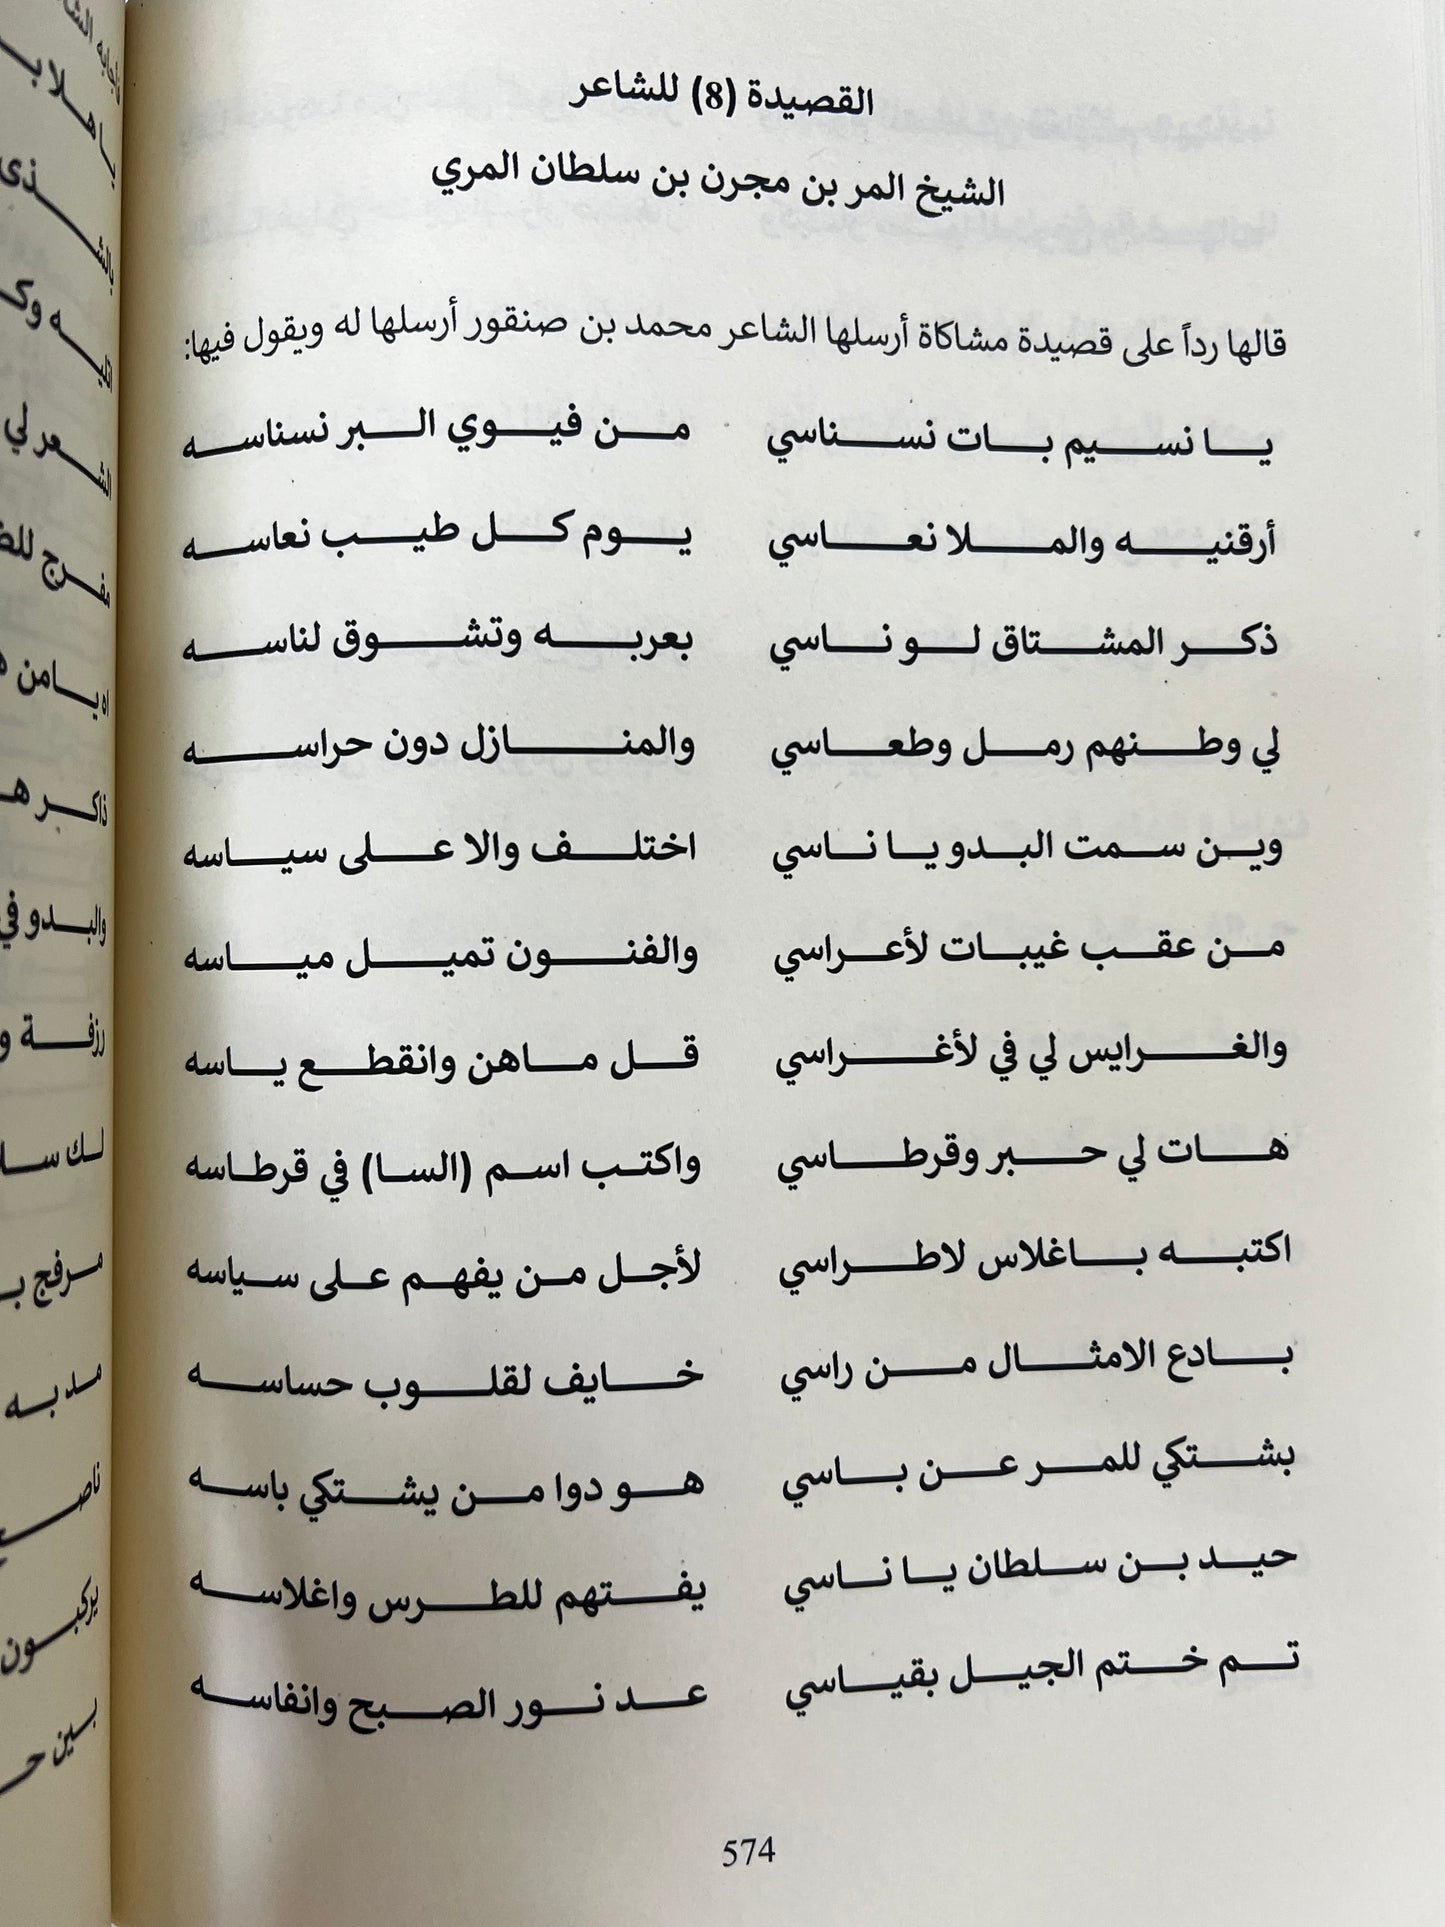 القصيدة (8) للشاعر
الشيخ المر بن مجرن بن سلطان المري
قالها رداً على قصيدة مشاكاة أرسلها الشاعر محمد بن صنقور أرسلها له ويقول فيها:
يا نسيم بات نسناسي من فيوي البر نسناسه
أرقنيه والملا نعاسي يوم كل طيب نعاسه
ذكر المشتاق لو ناسي بعربه وتشوق لناسه
لي وطنهم رمل وطعاسي والمنازل دون حراسه
وين سمت البدو يا ناسي اختلف والا على سياسه
من عقب غيبات لأعراسي والفنون تميل مياسه
والغرايس لي في لأغراسي قل ماهن وانقطع ياسه
هات لي حبر وقرطاسي واكتب اسم (السا) في قرطاسه
اكتبه باغلاس لاطراسي لأجل من يفهم على سياسه
بادع الامثال من راسي خايف لقلوب حساسه
بشتكي للمر عن باسي هو دوا من يشتكي باسه
حيد بن سلطان يا ناسي يفتهم للطرس واغلاسه
تم ختم الجيل بقياسي عد نور الصبح وانفاسه
574
يا هلا
بالشذى
مفرج
ذاكر
والبدو في
رزفة
لك
مدبه
يركبون
بين